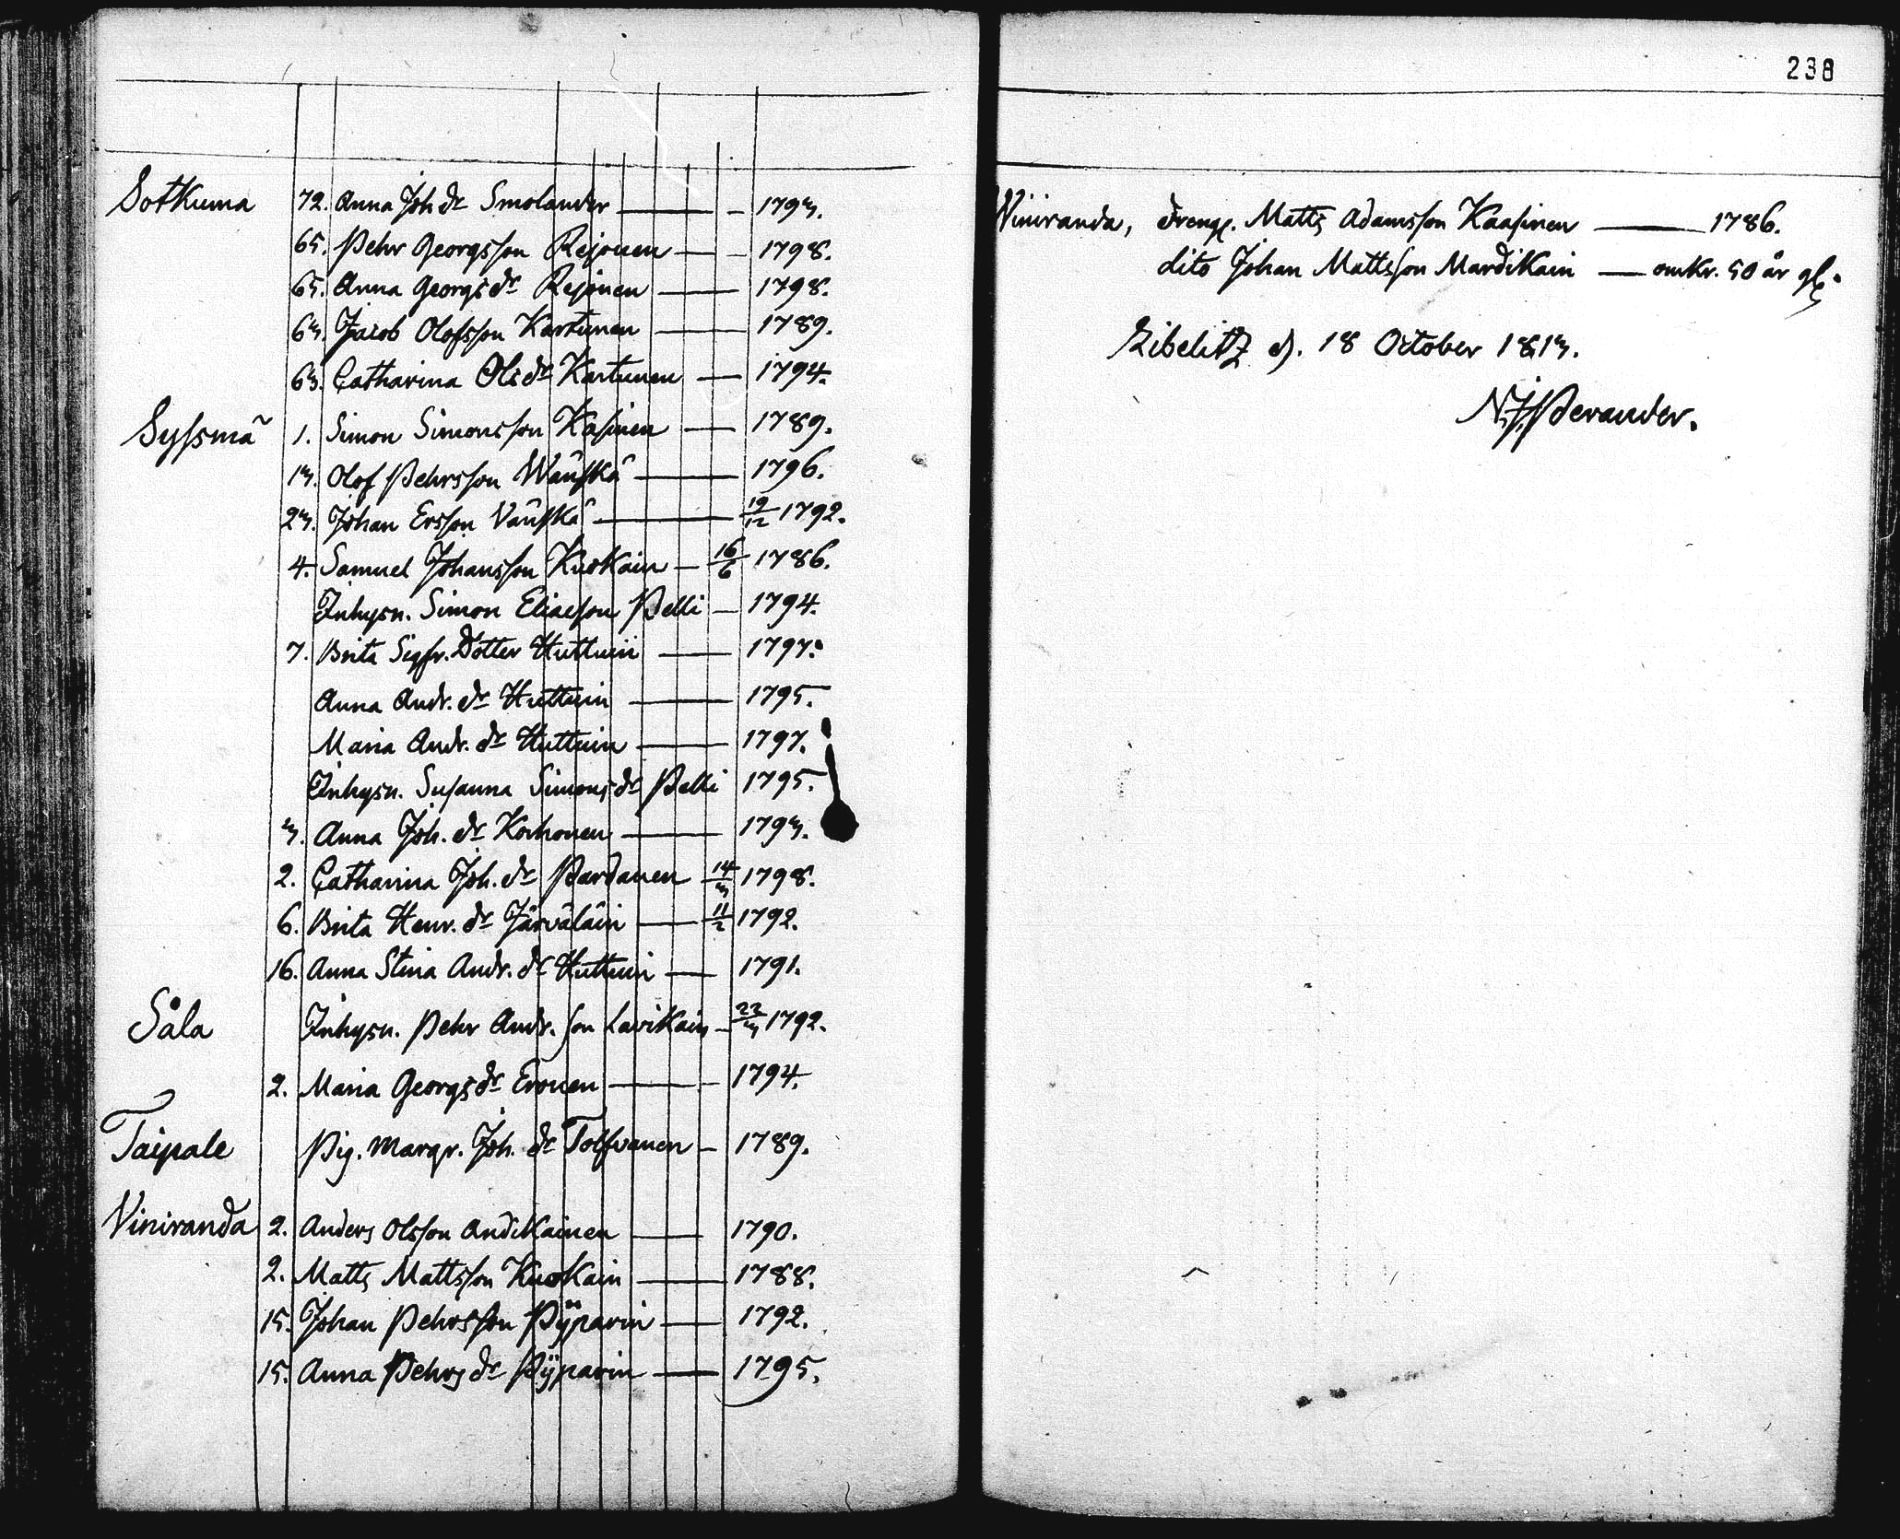 Sotkuma 72. Anna Joh dr Smolander — 1793.
65. Pehr Georgsson Rejonen — 1798.
65. Anna Georgs dr Rejonen — 1798.
63. Jacob Olofsson Kartunen — 1789.
63. Catharina Ols dr Kartunen — 1794.
Syssmä 1. Simon Simonsson Kasinen — 1789.
13. Olof Pehrsson Wänskä — 1796.
23. Johan Ersson Vänskä — 19/12 1792.
4. Samuel Johansson Kuokain — 16/6 1786.
Inhysn. Simon Eliaeson Pelli — 1794.
7. Brita Sigfr. Dotter Huttuin — 1797.
Anna Andr. dr Huttuin — 1795.
Maria Andr. dr Huttuin — 1797.
Inhysn. Susanna Simons dr Pelli 1795.
3. Anna Joh. dr Korhonen — 1793.
2. Catharina Joh. dr Pardanen 14/3 1798.
6. Brita Henr. dr Järväläin — 11/2 1792.
16. Anna Stina Andr. dr Huttuin — 1791.
Såla Inhysn. Pehr Andr. son Lavikain — 22/3 1792.
2. Maria Georgs dr Eronen — 1794.
Taipale Pig. Margr. Joh. dr Tolfvanen — 1789.
Viniranda 2. Anders Olsson Andikainen — 1790.
2. Matts Mattsson Kuokain — 1788.
15. Johan Pehrsson Pÿparin — 1792.
15. Anna Pehrs dr Pÿparin — 1795.
238
Viniranda, Dreng. Matts Adamsson Kaasinen — 1786.
dito Johan Mattsson Mardikain — omkr. 50 år gl.
Libelitz d. 18 October 1813.
N. J. Perander.